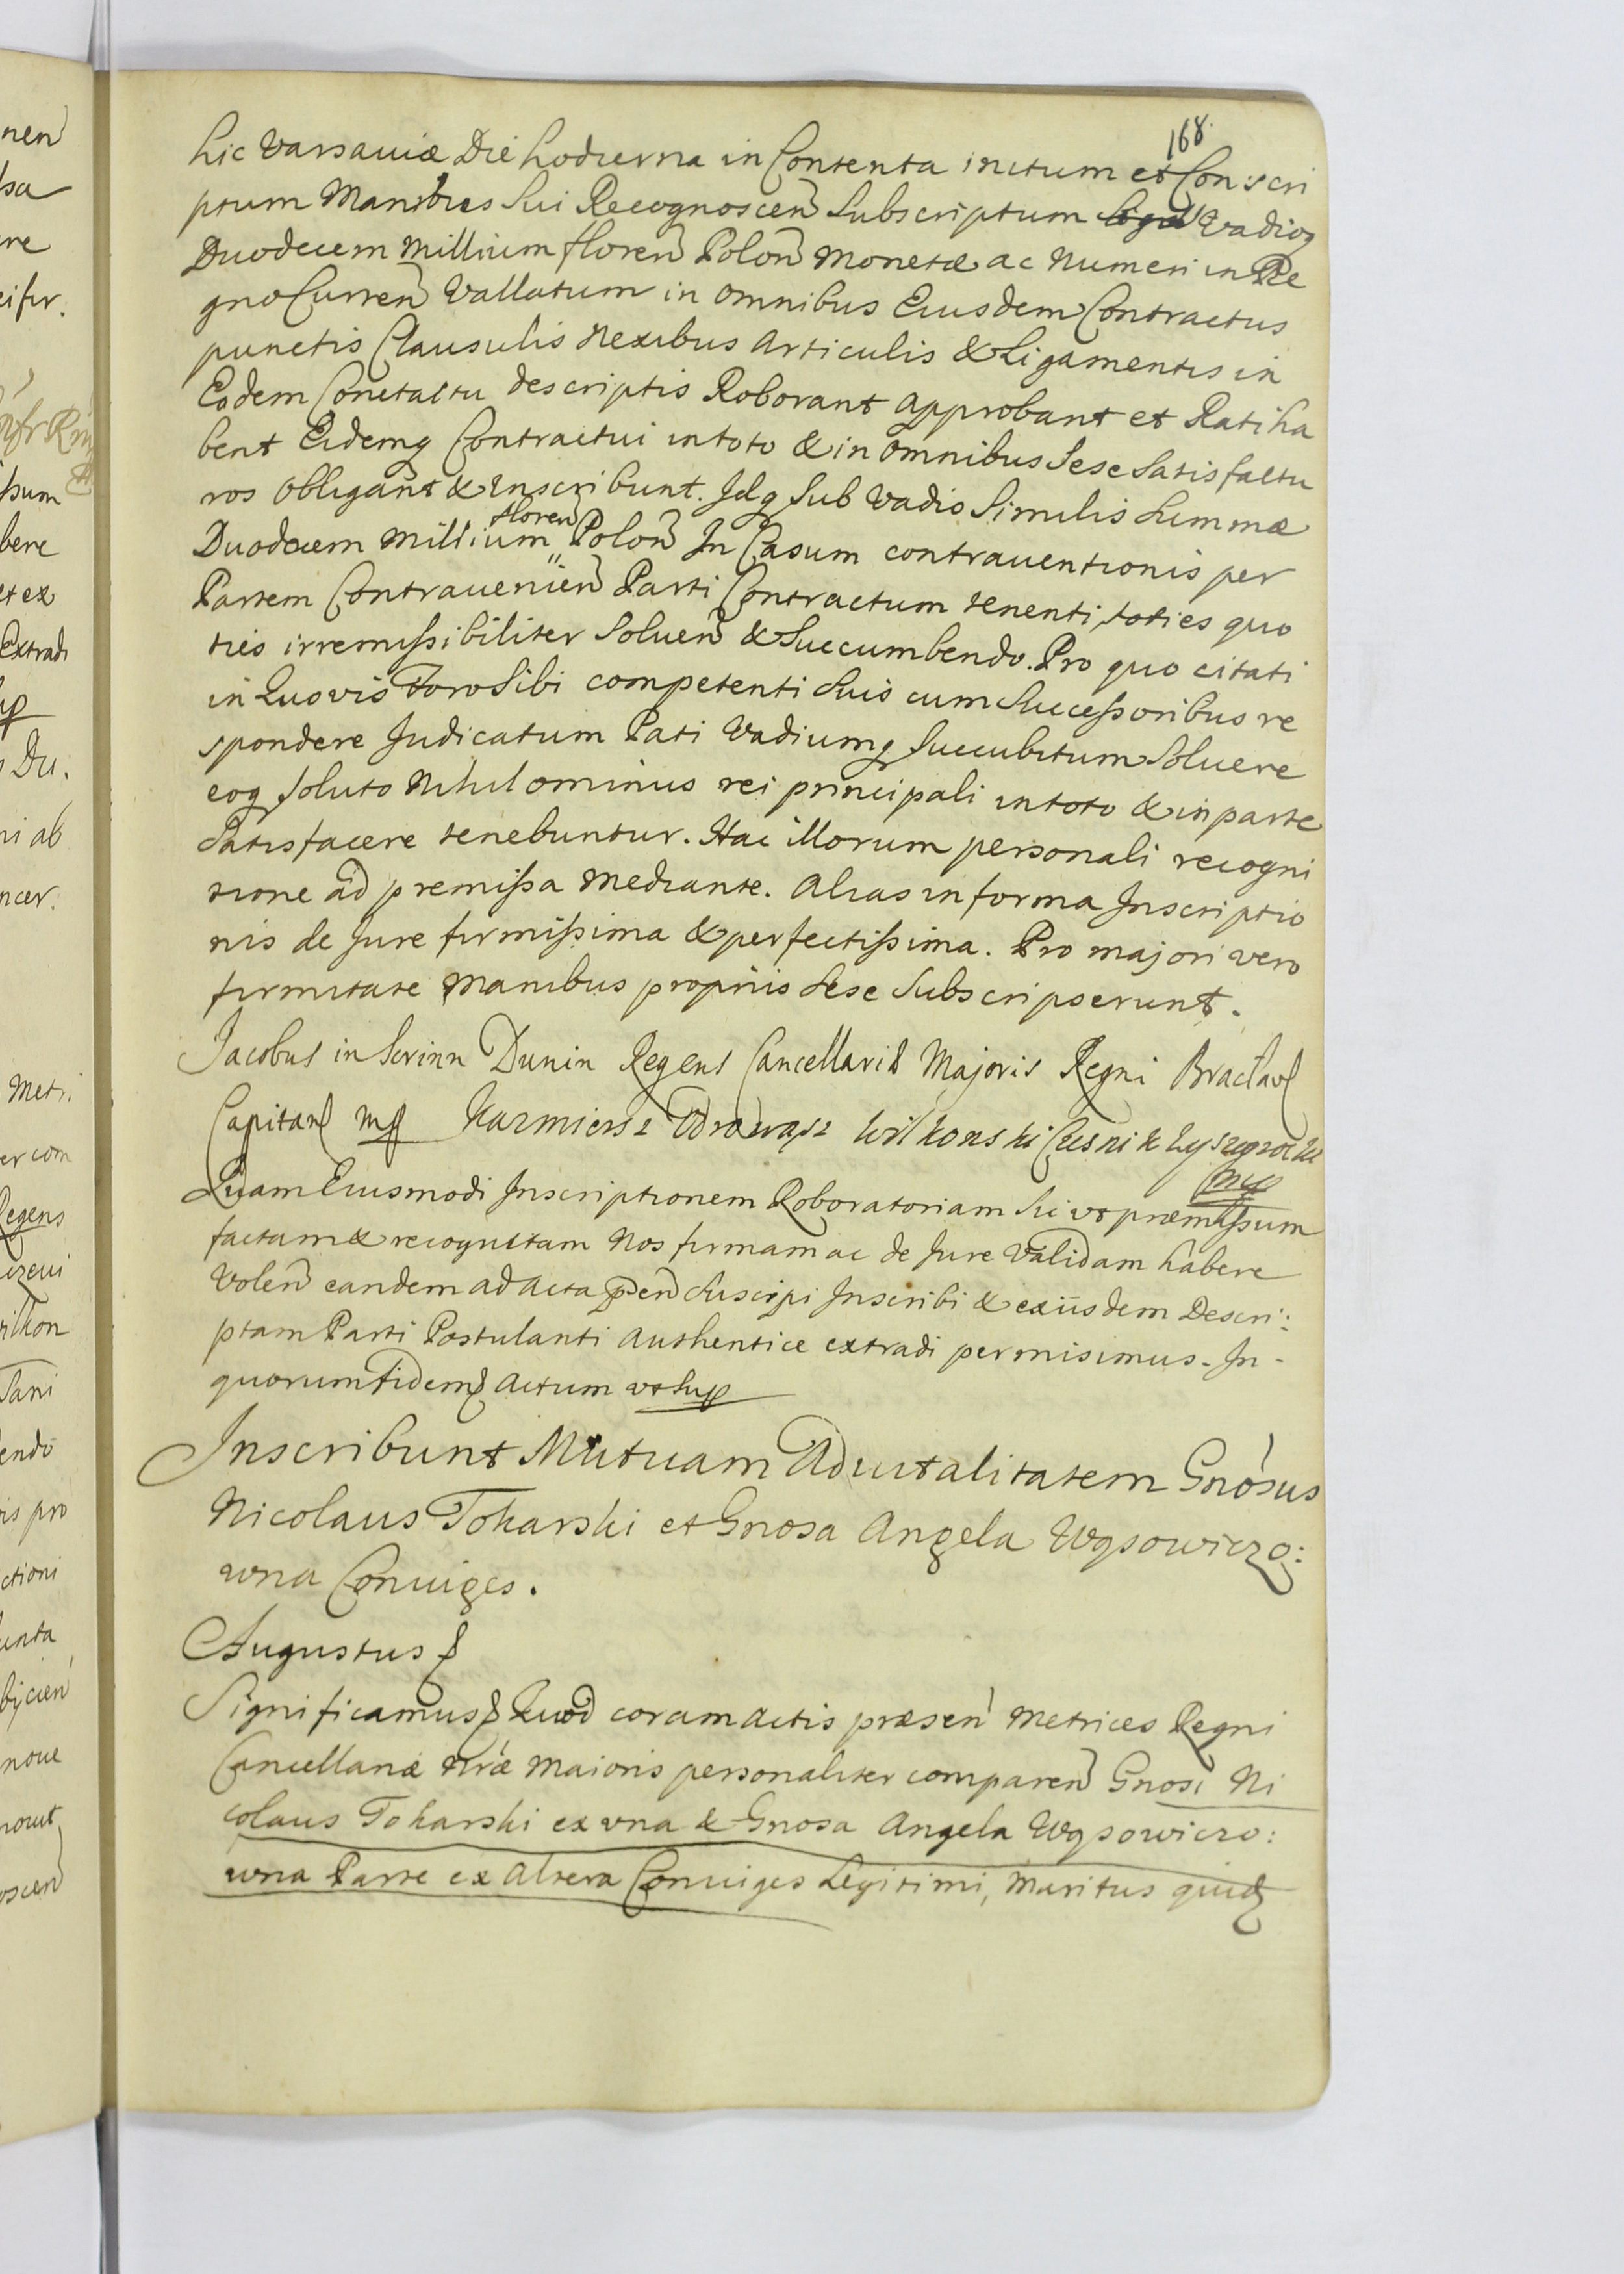 168.
hic Varsaviæ Die hodierna in Contenta initum et Conscri
ptum Manibus Sui Recognoscen Subscriptum Vadioq
Duodecem Millium floren Polon Monetæ ac Numeri in Re
gno Curren Vallatum in omnibus Eiusdem Contractus
punctis Clausulis Nexibus Articulis & Ligamentis in
Eodem Conctactu descriptis Roborant Approbant et Ratiha
bent Eidemq Contractui in toto & in omnibus Sese Satisfactu
ros Obligant & Inscribunt. Idq Sub Vadio Similis Summæ
Duodecem Millium floren Polon In Casum contrauentionis per
Partem Contrauenien Parti Contractum tenenti, toties quo
ties irremissibiliter Soluen & Succumbendo. Pro quo citati
in Quovis Foro Sibi competenti Suis cum Successoribus re
spondere Judicatum Pati Vadiumq Succubitum Soluere
eoq Soluto Nihilominus rei principali in toto & in parte
Satisfacere tenebuntur. Hac illorum personali recogni
tione ad premissa Mediante. Alias in forma Inscriptio
nis de Jure firmissima & perfectissima. Pro majori vero
firmitate Manibus proprijs Sese Subscripserunt.
Jacobus in Scrinn Dunin Regens Cancellariæ Majoris Regni Braclav
Capitan mp Kazmiersz Odrowasz Wilkonski Czesnik Wyszogrocki
mp
Quam Eiusmodi Inscriptionem Roboratoriam Sic ut præmissum
factam & recognitam Nos firmam ac de Jure Validam habere
Volen eandem ad Acta pñ Suscipi Inscribi & ex iisdem Descri:
ptam Parti Postulanti Authentice extradi permisimus. In
quorum Fidem Actum ut Sup
Inscribunt Mutuam Aduitalitatem Gnosus
Nicolaus Tokarski et Gnosa Angela Wąsowiczo:
wna Coniuiges.
Augustus
Significamus Quod coram Actis præsen Metrices Regni
Cancellariæ Nræ Maioris personaliter comparen Gnosi Ni
colaus Tokarski ex una & Gnosa Angela Wąsowiczo:
wna Parte ex Altera Coniuiges Legitimi, Maritus quid